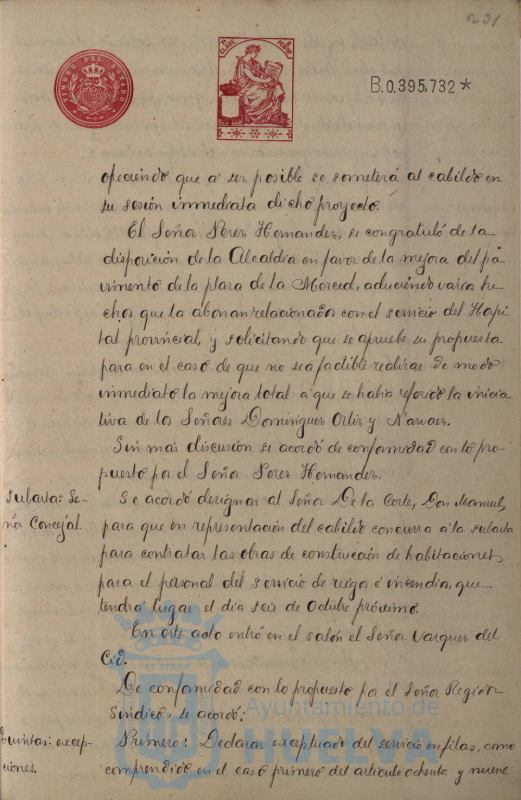 231
TIMBRE DEL ESTADO
CLASE
B.0.395.732*
opeciendo que a ser posible se someterá al cabildo en
su sesión inmediata dicho proyecto.
El Señor Perez Hernandez, se congratuló de la
disposición de la Alcaldia en favor de la mejora del pa-
vimento de la plaza de la Merced, aduciendo varios he-
chos que la abonan relacionados con el servicio del Hospi-
tal provincial, y solicitando que se apruebe su propuesta
para en el caso de que no sea factible realizar de modo
inmediato la mejora total a que se habia referido la inicia-
tiva de los Señores Dominguez Ortiz y Narvaez.
Sin mas discusión se acordó de conformidad con lo pro-
puesto por el Señor Perez Hernandez.
Subasta: Se-
ñor Concejal.
Se acordó designar al Señor De la Corte, Don Manuel,
para que en representación del cabildo concurra a la subasta
para contratar las obras de construcción de habitaciones,
para el personal del servicio de riego é incendia, que
tendrá lugar el dia seis de Octubre próximo.
En este acto entró en el salón el Señor Vazquez del
Cid.
De conformidad con lo propuesto por el Señor Regidor
Sindico, se acordó:
Quintas: excep-
ciones.
Primero: Declarar exceptuado del servicio en filas, como
comprendido en el caso primero del articulo ochenta y nueve
Ayuntamiento de
HUELVA